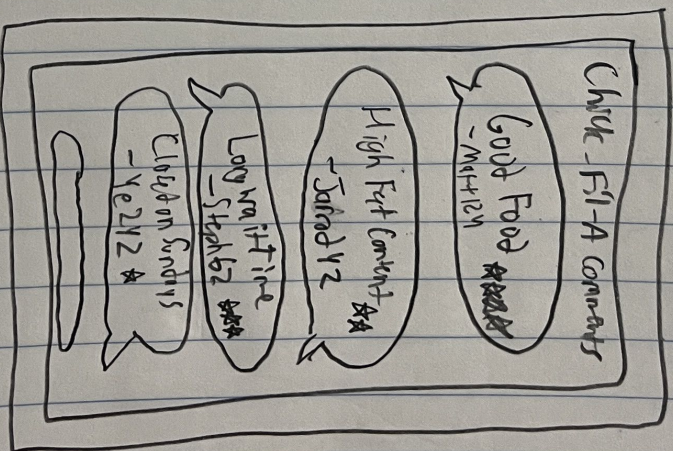 Chick-Fil-A Comments
Good Food ★★★★★
-Matt124
High Fat Content
-Jarod42 ★★
Long wait time
-Steph62 ★★★
Closed on Sundays
-Ye242 ★